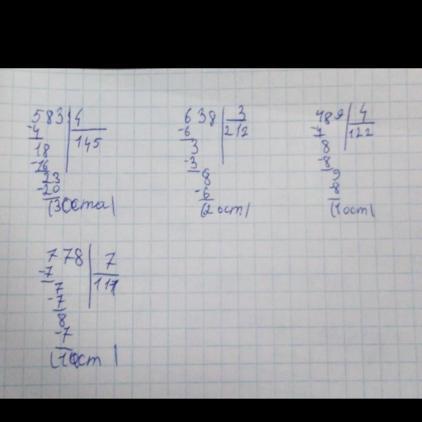 583 4
-4 145
18
-16
23
-20
(3 оста)
638 3
-6 212
3
-3
8
-6
(2 ост)
489 4
-4 122
8
-8
9
8
(1 ост)
778 7
-7 111
7
-7
8
-7
(1 ост)